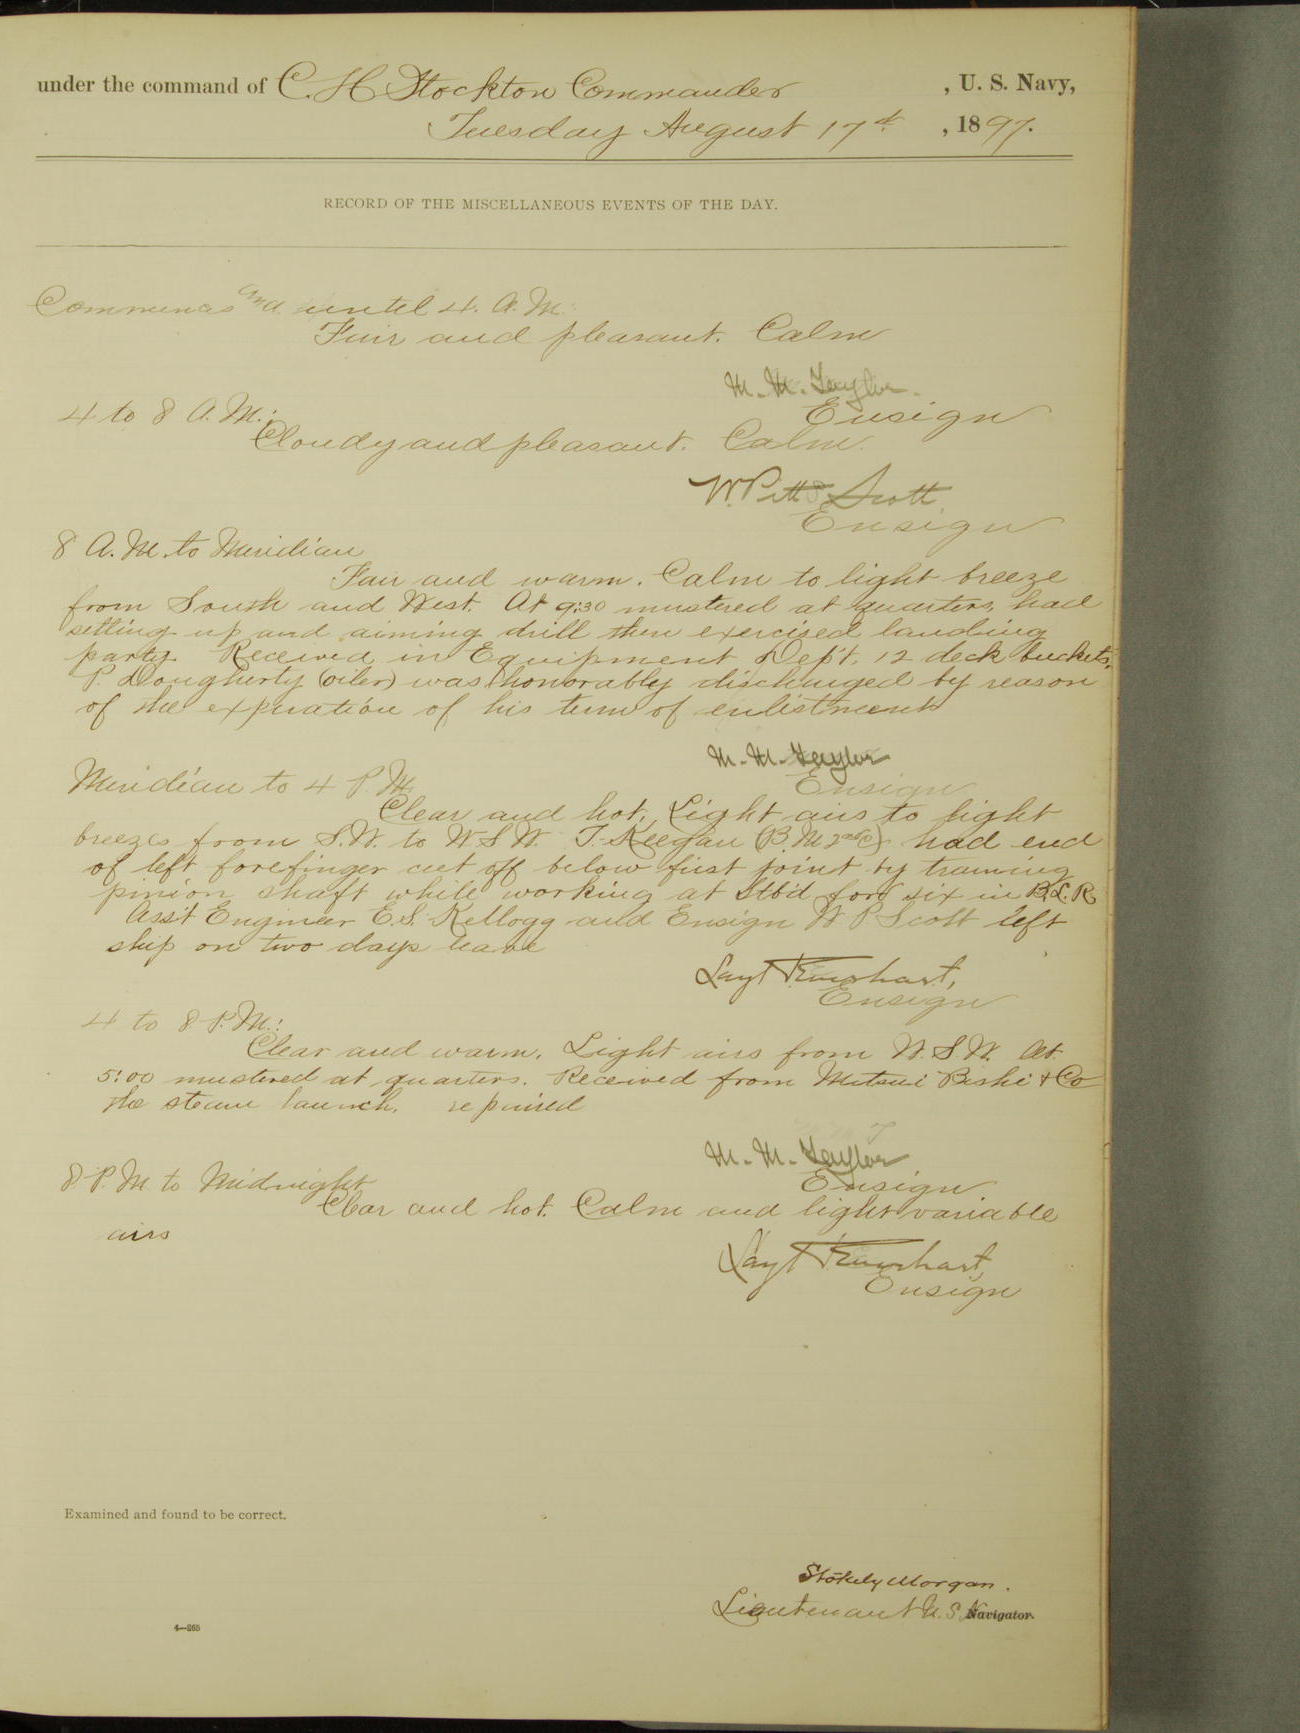 under the command of C. H. Stockton Commander, U. S. Navy,
Tuesday August 17th, 1897.
RECORD OF THE MISCELLANEOUS EVENTS OF THE DAY.
Commences and until 4. A. M.
Fair and pleasant. Calm
M. M. Taylor.
Ensign
4 to 8 A. M.:
Cloudy and pleasant. Calm.
W. Pitt Scott
Ensign
8 A. M. to Meridian
Fair and warm. Calm to light breeze
from South and West. At 9:30 mustered at quarters, had
setting up and aiming drill then exercised landing
party. Received in Equipment Dep't. 12 deck buckets.
P. Dougherty (oiler) was honorably discharged by reason
of the expiration of his term of enlistment
M. M. Taylor
Ensign
Meridian to 4 P. M.
Clear and hot. Light airs to light
breezes from S.W. to W.S.W. T. Keegan (B. M 2dC) had end
of left forefinger cut off below first joint by training
pinion shaft while working at Stb'd for'd six in B.L.R
Ass't Engineer E. S. Kellogg and Ensign W P Scott left
ship on two days leave
Ensign
4 to 8 P. M.:
Clear and warm. Light airs from W. S W. At
5:00 mustered at quarters. Received from Mitsui Bishi & Co
the steam launch, repaired
M. M. Taylor
Ensign
8 P. M. to Midnight
Clear and hot. Calm and light variable
airs
Ensign
Examined and found to be correct.
Stokely Morgan.
Lieutenant U. S. N Navigator.
4—265